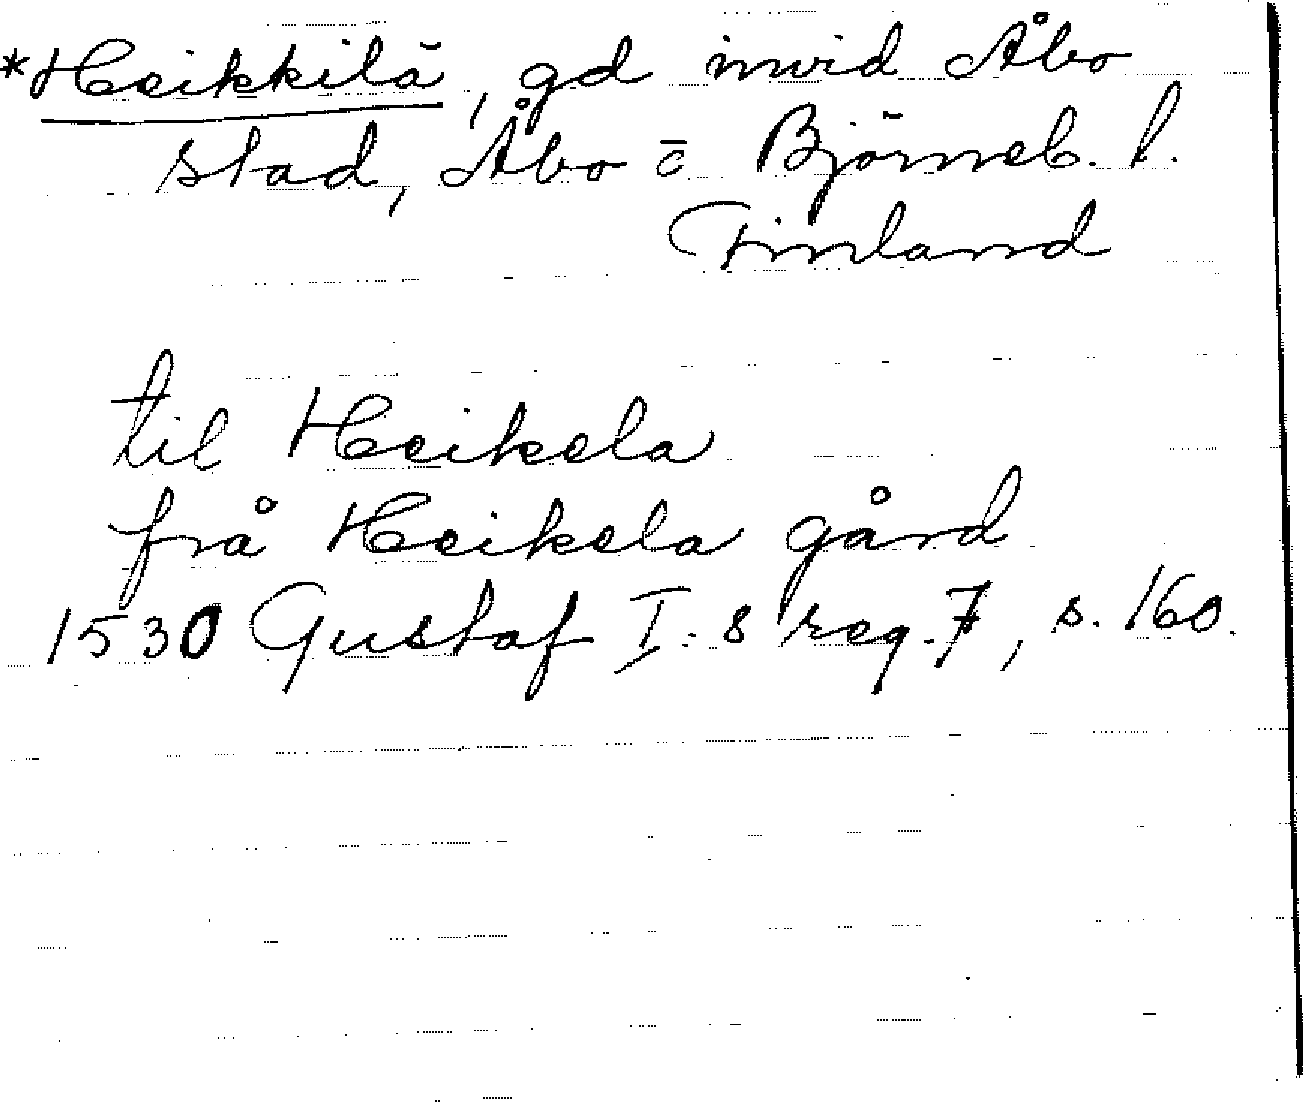 *Heikkilä, gd invid Åbo
stad, Åbo o Björneb. l.
Finland
til Heikela
frå Heikela gård
1530 Gustaf I:s reg. 7, s. 160.